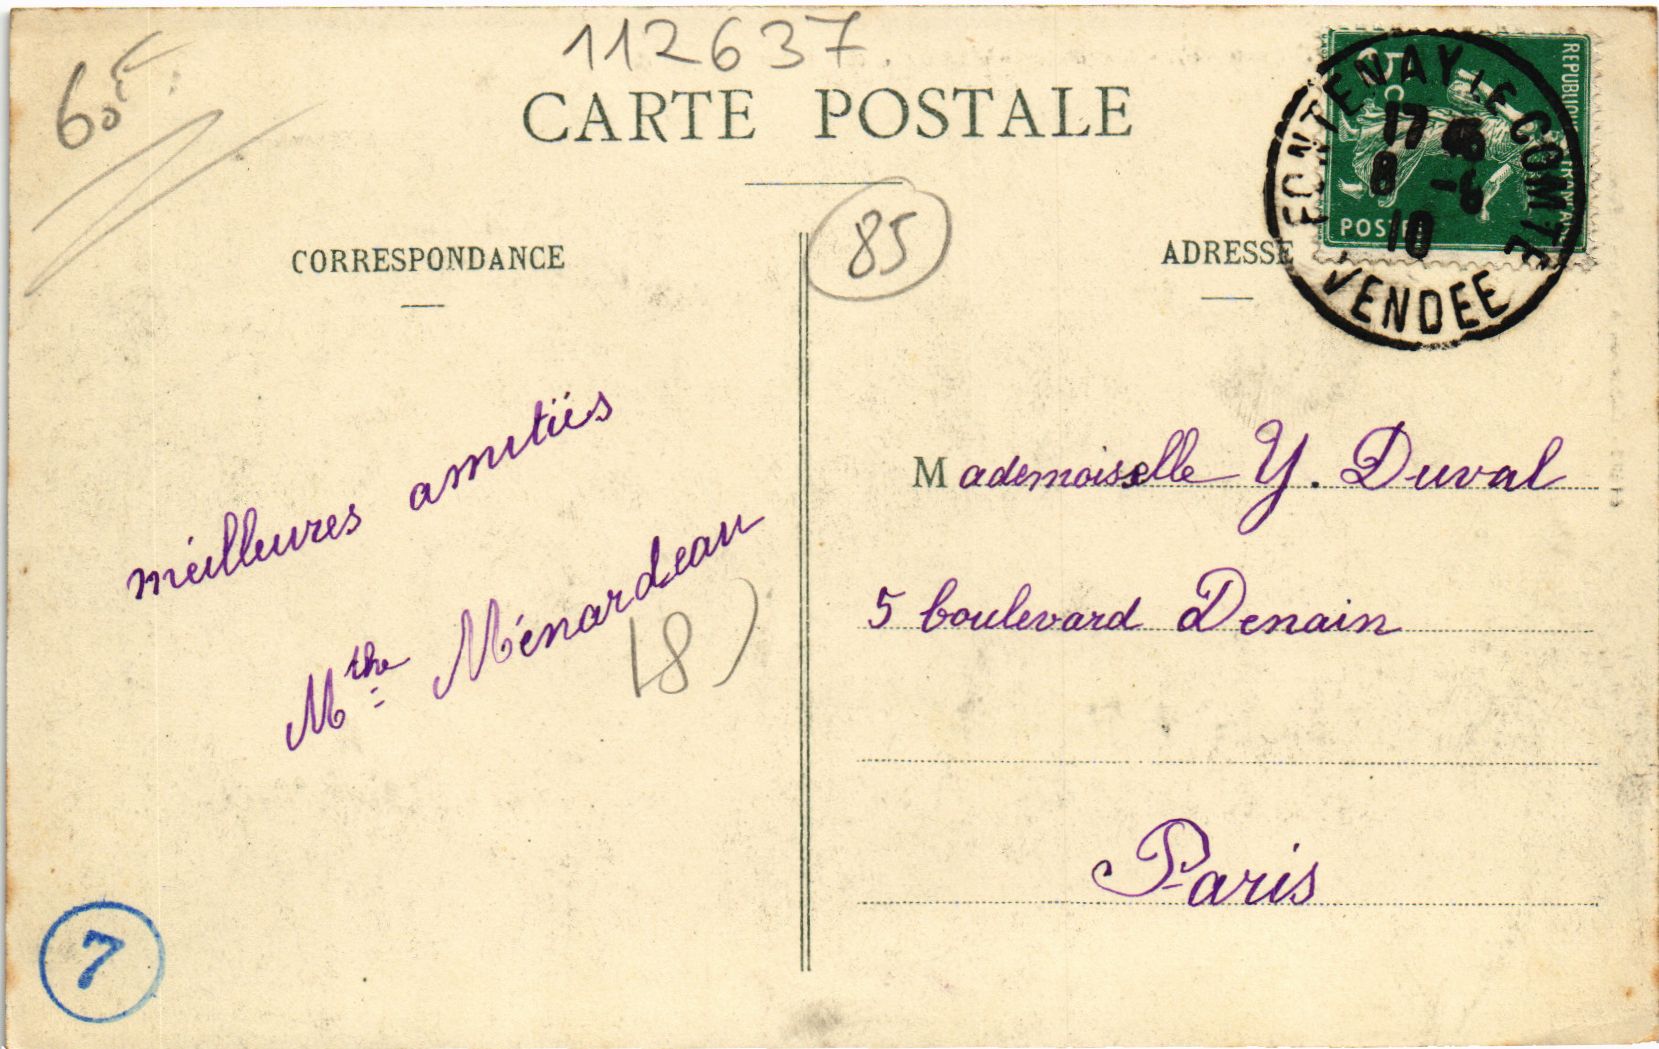 112637
60€
CARTE POSTALE
85
CORRESPONDANCE
ADRESSE
REPUBLIQUE FRANÇAISE
5c
POSTES
FONTENAY-LE-COMTE
17 45
8 -6
10
VENDEE
meilleures amitiés
Mthe Ménardeau
18)
Mademoiselle Y. Duval
5 boulevard Denain
Paris
7